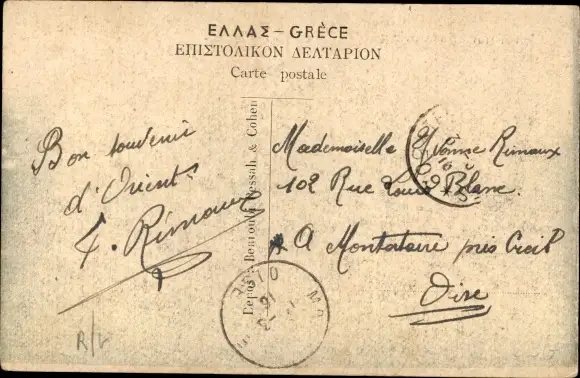 ΕΛΛΑΣ – GRÈCE
ΕΠΙΣΤΟΛΙΚΟΝ ΔΕΛΤΑΡΙΟΝ
Carte postale
Bon souvenir
d'Orient
F. Rimaux
Mademoiselle Yvonne Rimaux
102 Rue Louis Blanc
A Montataire près Creil
Oise
Bessah & Cohen
OISE
R/V